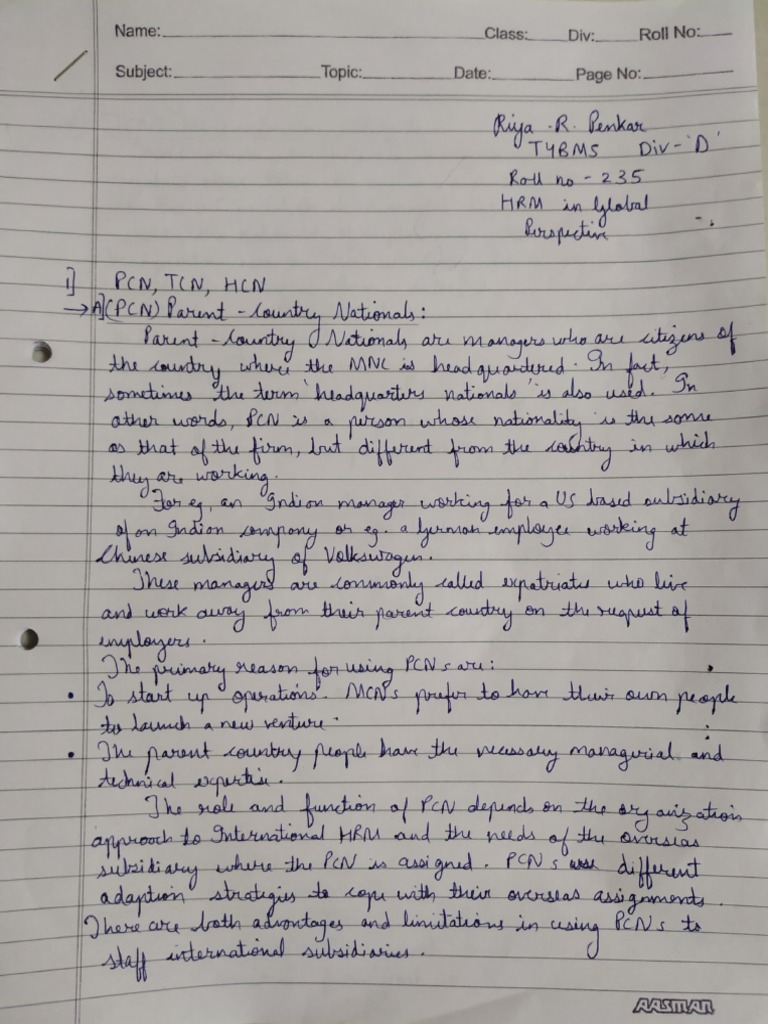 Name: Class: Div: Roll No:
Subject: Topic: Date: Page No:
Riya .R. Penkar
TYBMS Div-'D'
Roll no - 235
HRM in Global
Perspective
1] PCN, TCN, HCN
→A](PCN) Parent - Country Nationals:
Parent - Country Nationals are managers who are citizens of
the country where the MNC is headquardered. In fact,
sometimes the term 'headquarters nationals' is also used. In
other words, PCN is a person whose nationality is the same
as that of the firm, but different from the country in which
they are working.
For eg, an Indian manager working for a US based subsidiary
of an Indian company or eg. a German employee working at
Chinese subsidiary of Volkswagen.
These managers are commonly called expatriates who live
and work away from their parent country on the request of
employers.
The primary reason for using PCNs are:
• To start up operations. MCN's prefer to have their own people
to launch a new venture.
• The parent country people have the necessary managerial and
technical expertise.
The role and function of PCN depends on the organization
approach to International HRM and the needs of the overseas
subsidiary where the PCN is assigned. PCNs use different
adaption strategies to cope with their overseas assignments.
There are both advantages and limitations in using PCNs to
staff international subsidiaries.
AASMAN